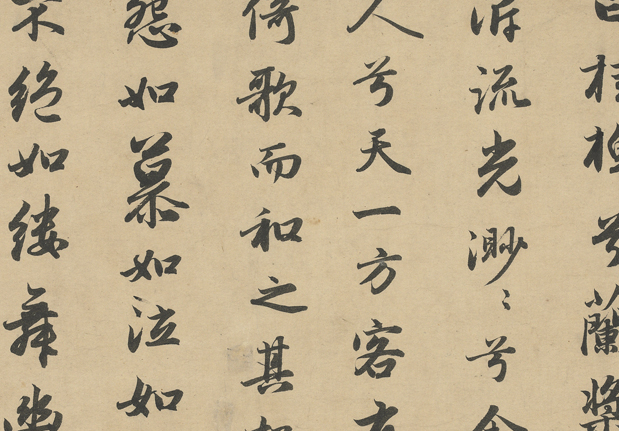 桂棹兮蘭槳
泝流光渺〻兮余
人兮天一方客有
倚歌而和之其
怨如慕如泣如
不絕如縷舞幽